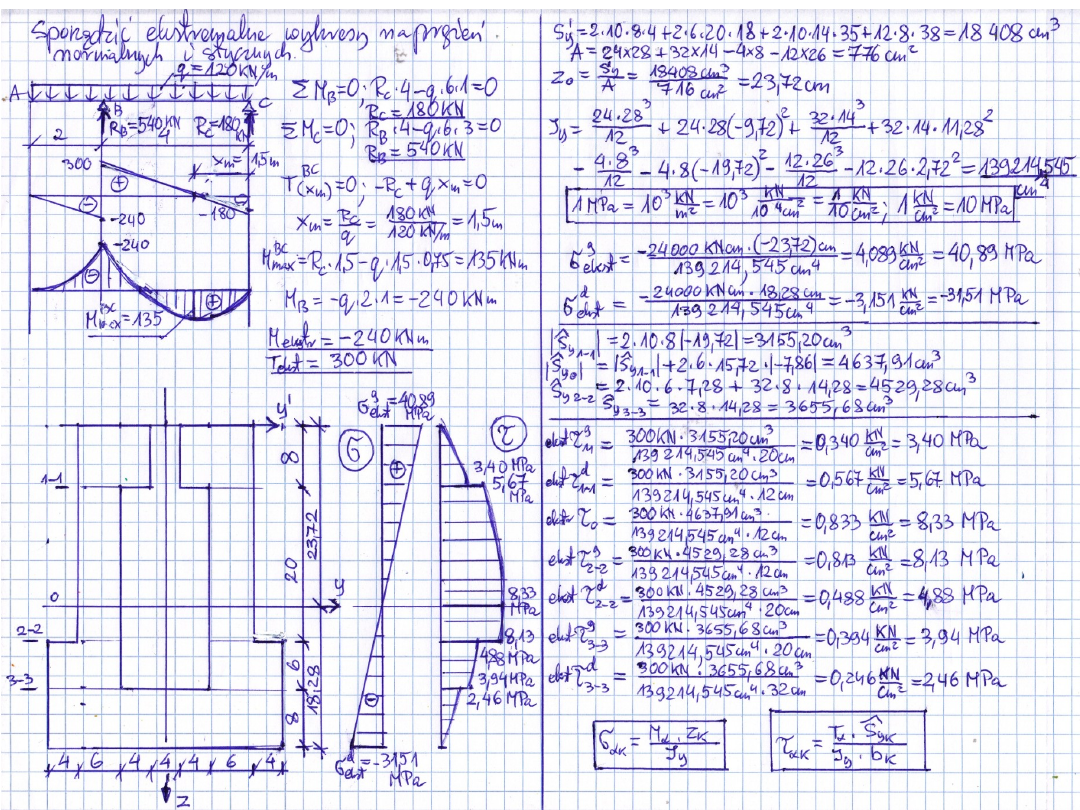 Sporządzić ekstremalne wykresy naprężeń
normalnych i stycznych.
q = 120 KN/m
A
B
C
R_B = 540 KN
R_C = 180 KN
2
4
x_m = 1,5m
300
-240
-180
-240
M^BC_max = 135
ΣM_B = 0; R_C·4 - q·6·1 = 0
R_C = 180 KN
ΣM_C = 0; R_B·4 - q·6·3 = 0
R_B = 540 KN
T^BC_(x_m) = 0; -R_C + q·x_m = 0
x_m = R_C/q = 180 KN / 120 KN/m = 1,5m
M^BC_max = R_C·1,5 - q·1,5·0,75 = 135 KNm
M_B = -q·2·1 = -240 KNm
M_ekstr = -240 KN
T_ekst = 300 KN
y'
1-1
0
2-2
3-3
8
20
6
8
23,72
18,28
y
z
4 6 4 4 4 6 4
σ^g_ekst = 40,89 MPa
σ
τ
3,40 MPa
5,67 MPa
8,33 MPa
8,13
4,88 MPa
3,94 MPa
2,46 MPa
σ^d_ekst = -31,51 MPa
S_y' = 2·10·8·4 + 2·6·20·18 + 2·10·14·35 + 12·8·38 = 18 408 cm³
A = 24×28 + 32×14 - 4×8 - 12×26 = 776 cm²
z_0 = S_y'/A = 18408 cm³ / 776 cm² = 23,72 cm
J_y = 24·28³/12 + 24·28(-9,72)² + 32·14³/12 + 32·14·11,28²
- 4·8³/12 - 4·8(-19,72)² - 12·26³/12 - 12·26·2,72² = 139214,545 cm⁴
1 MPa = 10³ KN/m² = 10³ KN/10⁴cm² = 1 KN/10cm²; 1 KN/cm² = 10 MPa
σ^g_ekst = -24000 KNcm·(-23,72)cm / 139 214,545 cm⁴ = 4,089 KN/cm² = 40,89 MPa
σ^d_ekst = -24000 KNcm·18,28cm / 139 214,545 cm⁴ = -3,151 KN/cm² = -31,51 MPa
|Ŝ_y1-1| = 2·10·8|-19,72| = 3155,20 cm³
|Ŝ_y0| = |Ŝ_y1-1| + 2·6·15,72·|-7,86| = 4637,91 cm³
Ŝ_y2-2 = 2·10·6·7,28 + 32·8·14,28 = 4529,28 cm³
Ŝ_y3-3 = 32·8·14,28 = 3655,68 cm³
ekst τ^g_1-1 = 300 KN·3155,20 cm³ / 139 214,545 cm⁴·20cm = 0,340 KN/cm² = 3,40 MPa
ekst τ^d_1-1 = 300 KN·3155,20 cm³ / 139214,545 cm⁴·12cm = 0,567 KN/cm² = 5,67 MPa
ekst τ_0 = 300 KN·4637,91 cm³ / 139214,545 cm⁴·12cm = 0,833 KN/cm² = 8,33 MPa
ekst τ^g_2-2 = 300 KN·4529,28 cm³ / 139214,545 cm⁴·12cm = 0,813 KN/cm² = 8,13 MPa
ekst τ^d_2-2 = 300 KN·4529,28 cm³ / 139214,545 cm⁴·20cm = 0,488 KN/cm² = 4,88 MPa
ekst τ^g_3-3 = 300 KN·3655,68 cm³ / 139214,545 cm⁴·20cm = 0,394 KN/cm² = 3,94 MPa
ekst τ^d_3-3 = 300 KN·3655,68 cm³ / 139214,545 cm⁴·32cm = 0,246 KN/cm² = 2,46 MPa
σ_αK = M_α·z_K / J_y
τ_αK = T_α·Ŝ_yK / J_y·b_K